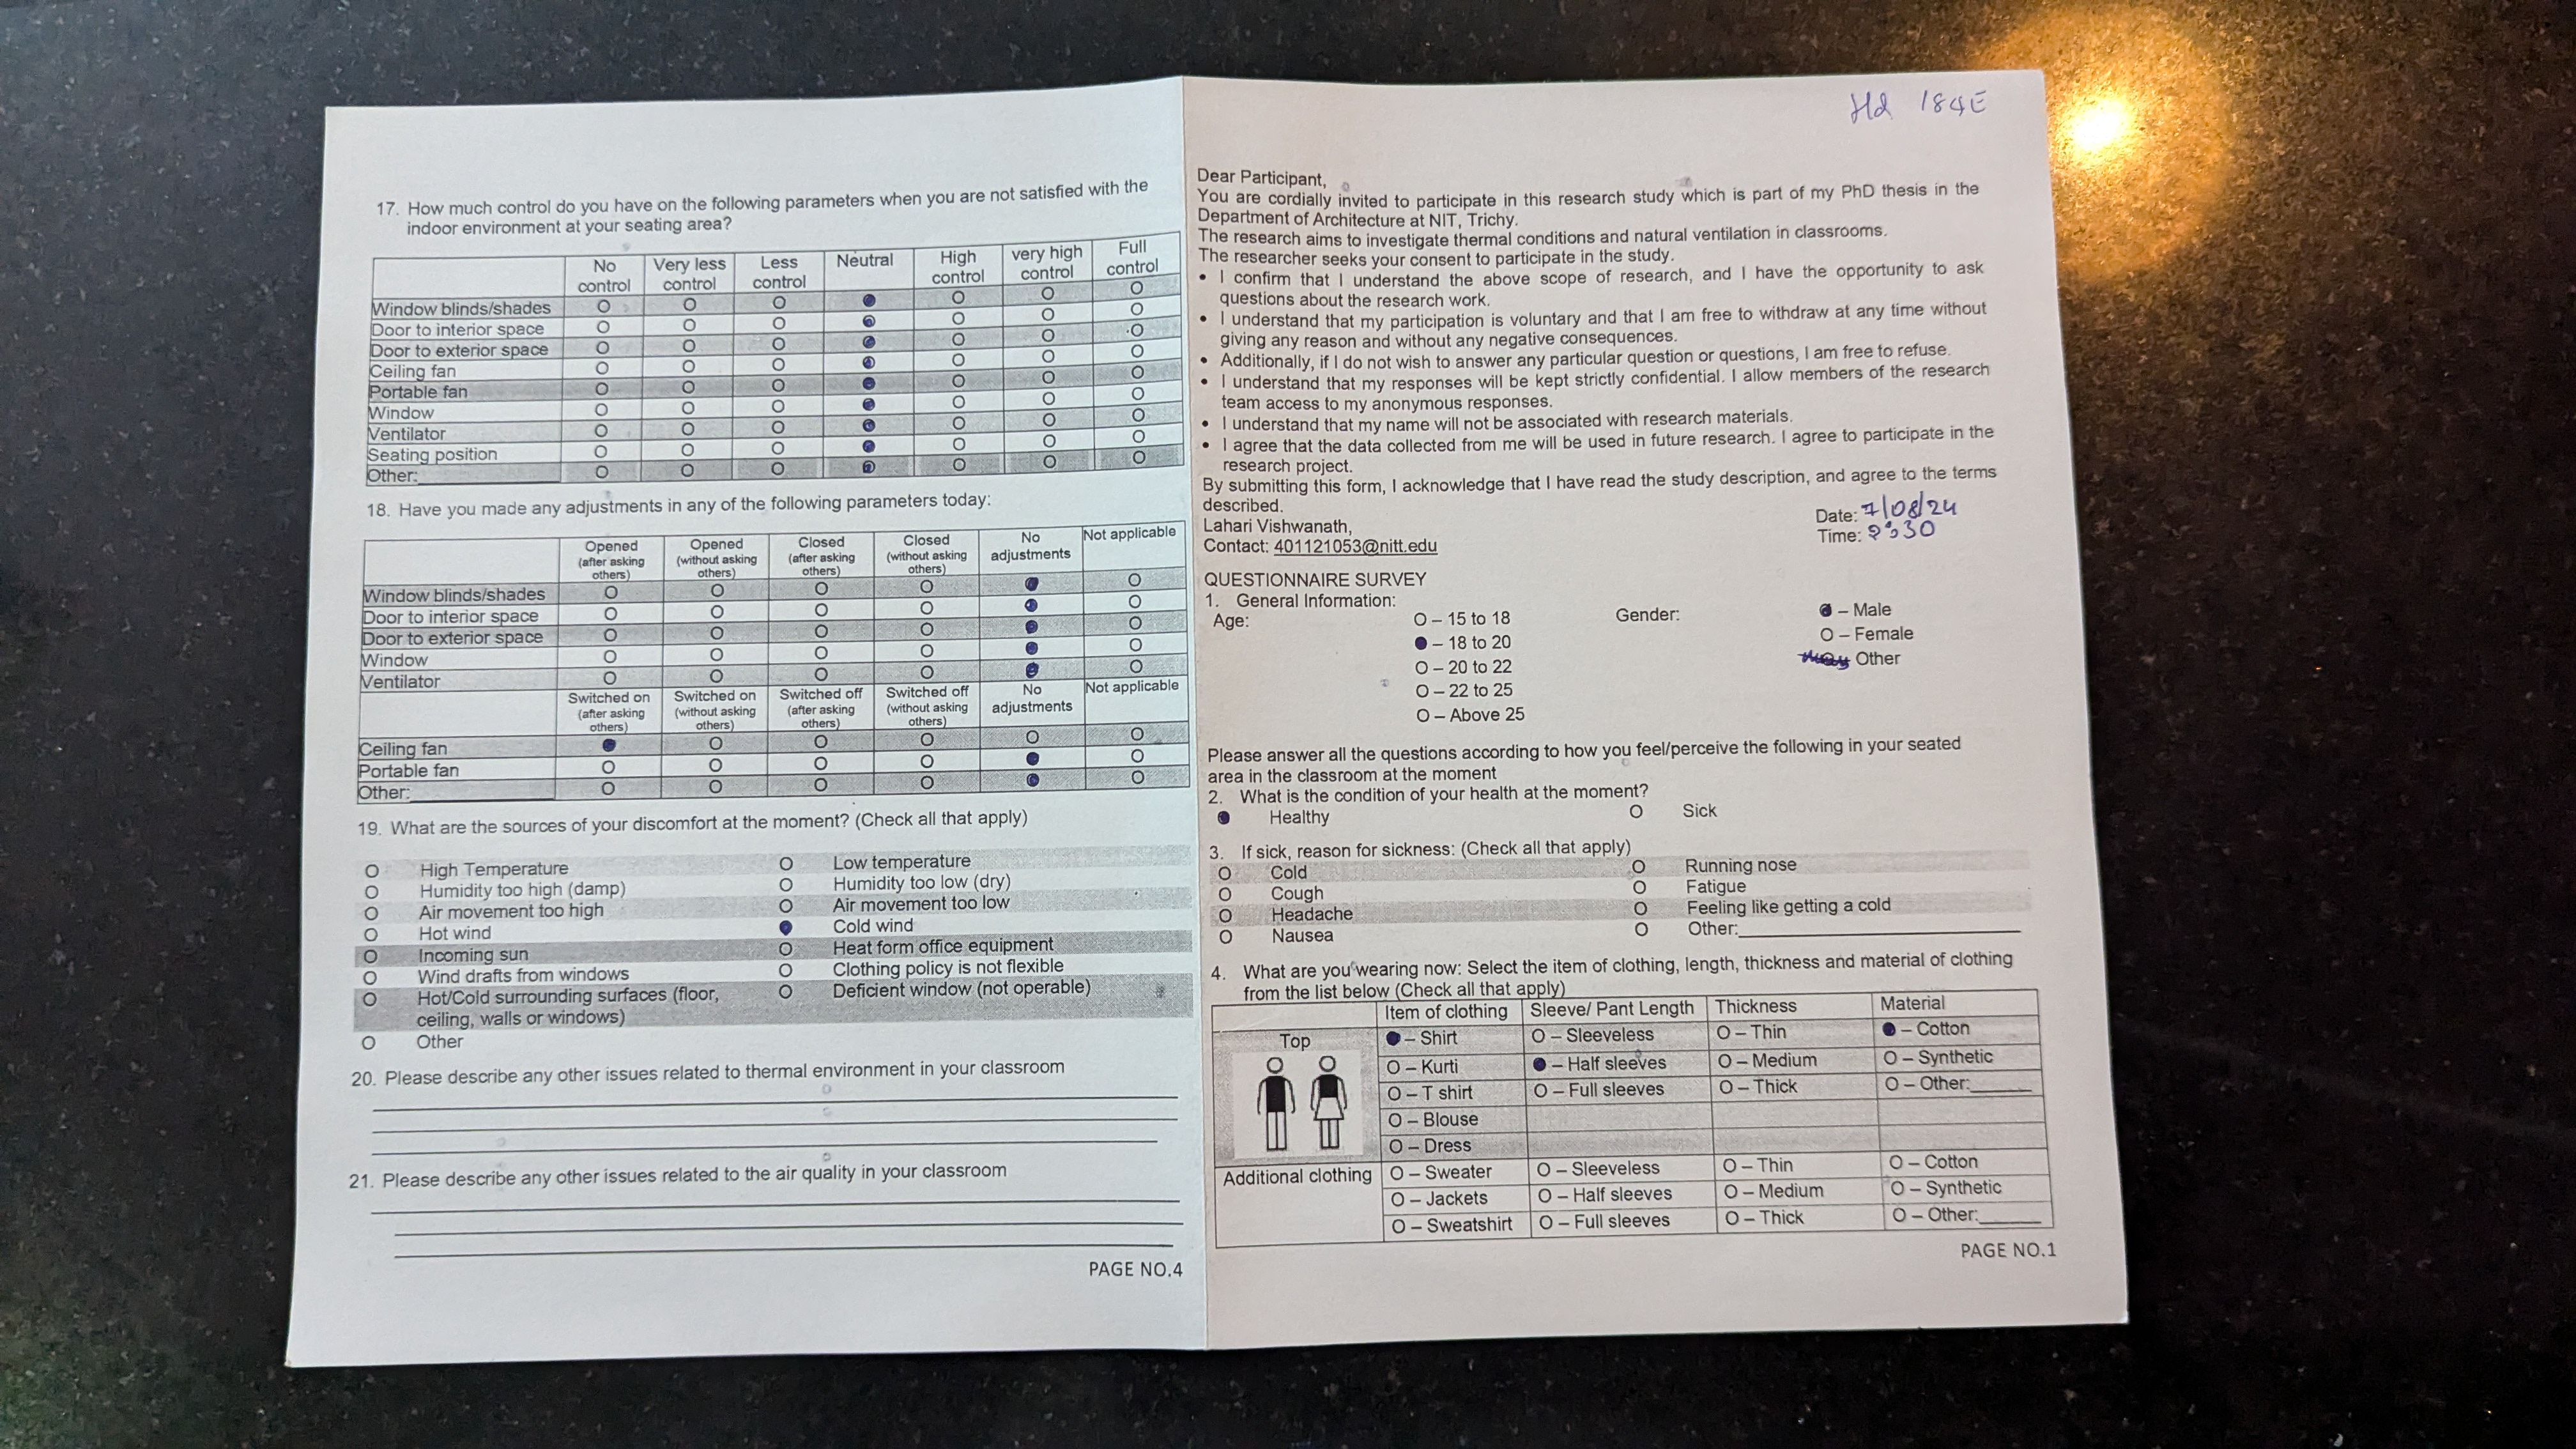 17. How much control do you have on the following parameters when you are not satisfied with the
indoor environment at your seating area?
No control | Very less control | Less control | Neutral | High control | very high control | Full control
Window blinds/shades O O O ● O O O
Door to interior space O O O ● O O O
Door to exterior space O O O ● O O O
Ceiling fan O O O ● O O O
Portable fan O O O ● O O O
Window O O O ● O O O
Ventilator O O O ● O O O
Seating position O O O ● O O O
Other: O O O ● O O O
18. Have you made any adjustments in any of the following parameters today:
Opened (after asking others) | Opened (without asking others) | Closed (after asking others) | Closed (without asking others) | No adjustments | Not applicable
Window blinds/shades O O O O ● O
Door to interior space O O O O ● O
Door to exterior space O O O O ● O
Window O O O O ● O
Ventilator O O O O ● O
Switched on (after asking others) | Switched on (without asking others) | Switched off (after asking others) | Switched off (without asking others) | No adjustments | Not applicable
Ceiling fan ● O O O O O
Portable fan O O O O ● O
Other: O O O O ● O
19. What are the sources of your discomfort at the moment? (Check all that apply)
O High Temperature O Low temperature
O Humidity too high (damp) O Humidity too low (dry)
O Air movement too high O Air movement too low
O Hot wind ● Cold wind
O Incoming sun O Heat form office equipment
O Wind drafts from windows O Clothing policy is not flexible
O Hot/Cold surrounding surfaces (floor, O Deficient window (not operable)
ceiling, walls or windows)
O Other
20. Please describe any other issues related to thermal environment in your classroom
21. Please describe any other issues related to the air quality in your classroom
PAGE NO.4
184E
Dear Participant,
You are cordially invited to participate in this research study which is part of my PhD thesis in the
Department of Architecture at NIT, Trichy.
The research aims to investigate thermal conditions and natural ventilation in classrooms.
The researcher seeks your consent to participate in the study.
• I confirm that I understand the above scope of research, and I have the opportunity to ask
questions about the research work.
• I understand that my participation is voluntary and that I am free to withdraw at any time without
giving any reason and without any negative consequences.
• Additionally, if I do not wish to answer any particular question or questions, I am free to refuse.
• I understand that my responses will be kept strictly confidential. I allow members of the research
team access to my anonymous responses.
• I understand that my name will not be associated with research materials.
• I agree that the data collected from me will be used in future research. I agree to participate in the
research project.
By submitting this form, I acknowledge that I have read the study description, and agree to the terms
described.
Lahari Vishwanath,
Contact: 401121053@nitt.edu
Date: 7/08/24
Time: :30
QUESTIONNAIRE SURVEY
1. General Information:
Age: O – 15 to 18 Gender: ● – Male
● – 18 to 20 O – Female
O – 20 to 22 Other
O – 22 to 25
O – Above 25
Please answer all the questions according to how you feel/perceive the following in your seated
area in the classroom at the moment
2. What is the condition of your health at the moment?
● Healthy O Sick
3. If sick, reason for sickness: (Check all that apply)
O Cold O Running nose
O Cough O Fatigue
O Headache O Feeling like getting a cold
O Nausea O Other:
4. What are you wearing now: Select the item of clothing, length, thickness and material of clothing
from the list below (Check all that apply)
Item of clothing | Sleeve/ Pant Length | Thickness | Material
Top ● – Shirt O – Sleeveless O – Thin ● – Cotton
O – Kurti ● – Half sleeves O – Medium O – Synthetic
O – T shirt O – Full sleeves O – Thick O – Other:
O – Blouse
O – Dress
Additional clothing O – Sweater O – Sleeveless O – Thin O – Cotton
O – Jackets O – Half sleeves O – Medium O – Synthetic
O – Sweatshirt O – Full sleeves O – Thick O – Other:
PAGE NO.1